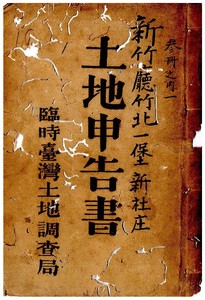 叁冊之內一
新竹廳竹北一堡新社庄
土地申告書
臨時臺灣土地調查局